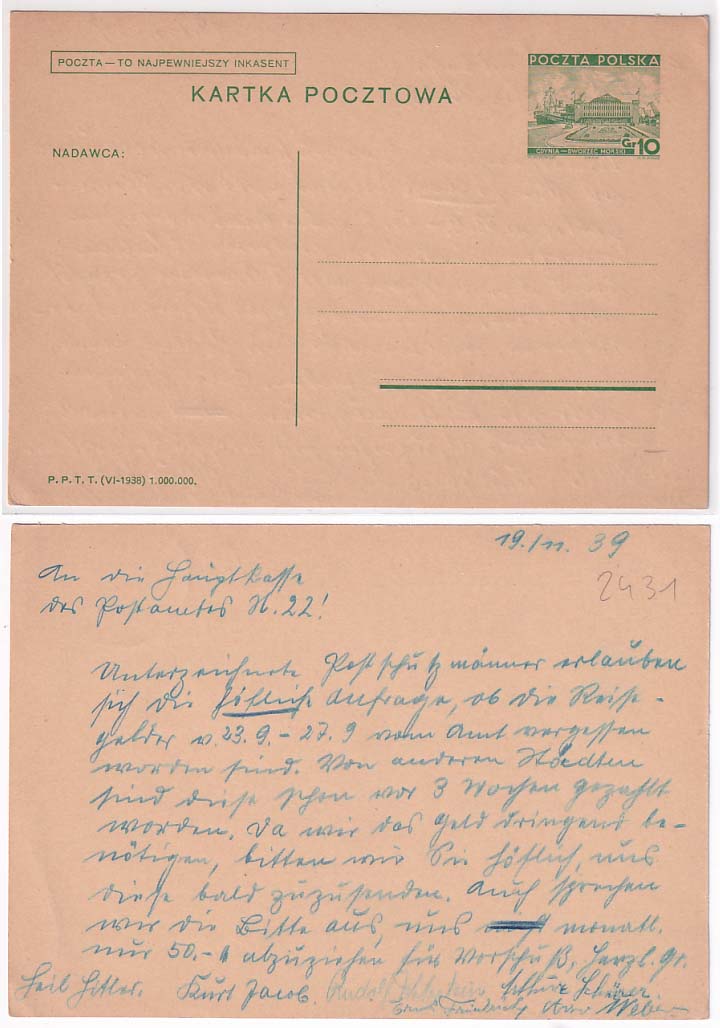 POCZTA — TO NAJPEWNIEJSZY INKASENT
POCZTA POLSKA
KARTKA POCZTOWA
Gr 10
GDYNIA—DWORZEC MORSKI
NADAWCA:
P. P. T. T. (VI-1938) 1.000.000.
19./11. 39
2431
An die Hauptkasse
des Postamtes N. 22!
Unterzeichnete Postschutzmänner erlauben
sich die höfliche Anfrage, ob die Reise-
gelder v. 23.9. - 27.9 vom Amt vergessen
worden sind. Von anderen Städten
sind diese schon vor 3 Wochen gezahlt
worden. Da wir das Geld dringend be-
nötigen, bitten wir Sie höflich, uns
diese bald zuzusenden. Auch sprechen
wir die Bitte aus, uns monatl.
nur 50.- abzuziehen für Vorschuß. Herzl. Gr.
Heil Hitler. Kurt Jacob. Rudolf
Weber